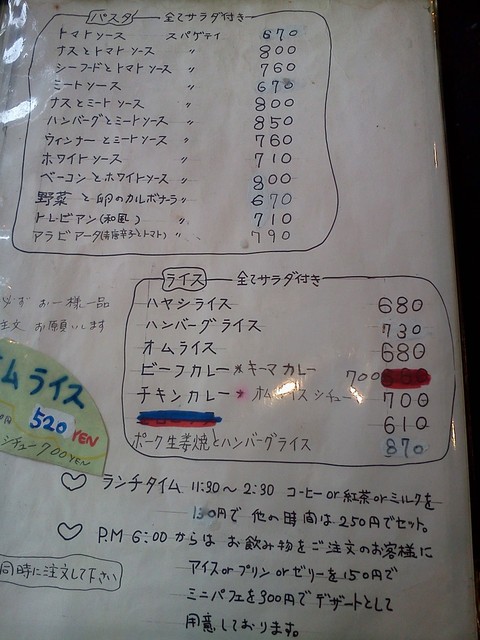 パスタ 全てサラダ付き
トマトソース スパゲティ 670
ナスとトマトソース 〃 800
シーフードとトマトソース 〃 760
ミートソース 〃 670
ナスとミートソース 〃 800
ハンバーグとミートソース 〃 850
ウィンナーとミートソース 〃 760
ホワイトソース 〃 710
ベーコンとホワイトソース 〃 800
野菜と卵のカルボナーラ 〃 670
トレビアン(和風) 〃 710
アラビアータ(青唐辛子とトマト) 〃 790
ライス 全てサラダ付き
必ずお一様一品
注文お願いします
ハヤシライス 680
ハンバーグライス 730
オムライス 680
ビーフカレー * キーマカレー 700
チキンカレー * オムライスシチュー 700
610
ポーク生姜焼とハンバーグライス 870
オムライス
520 YEN
シチュー700YEN
♡ ランチタイム 11:30〜2:30 コーヒーor紅茶orミルクを
130円で 他の時間は250円でセット。
♡ P.M 6:00からは お飲み物をご注文のお客様に
アイスorプリンorゼリーを150円で
ミニパフェを300円でデザートとして
用意しております。
同時に注文して下さい